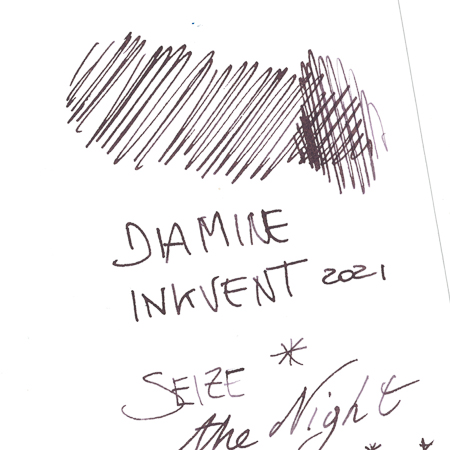 DIAMINE
INKVENT 2021
SEIZE
the Night